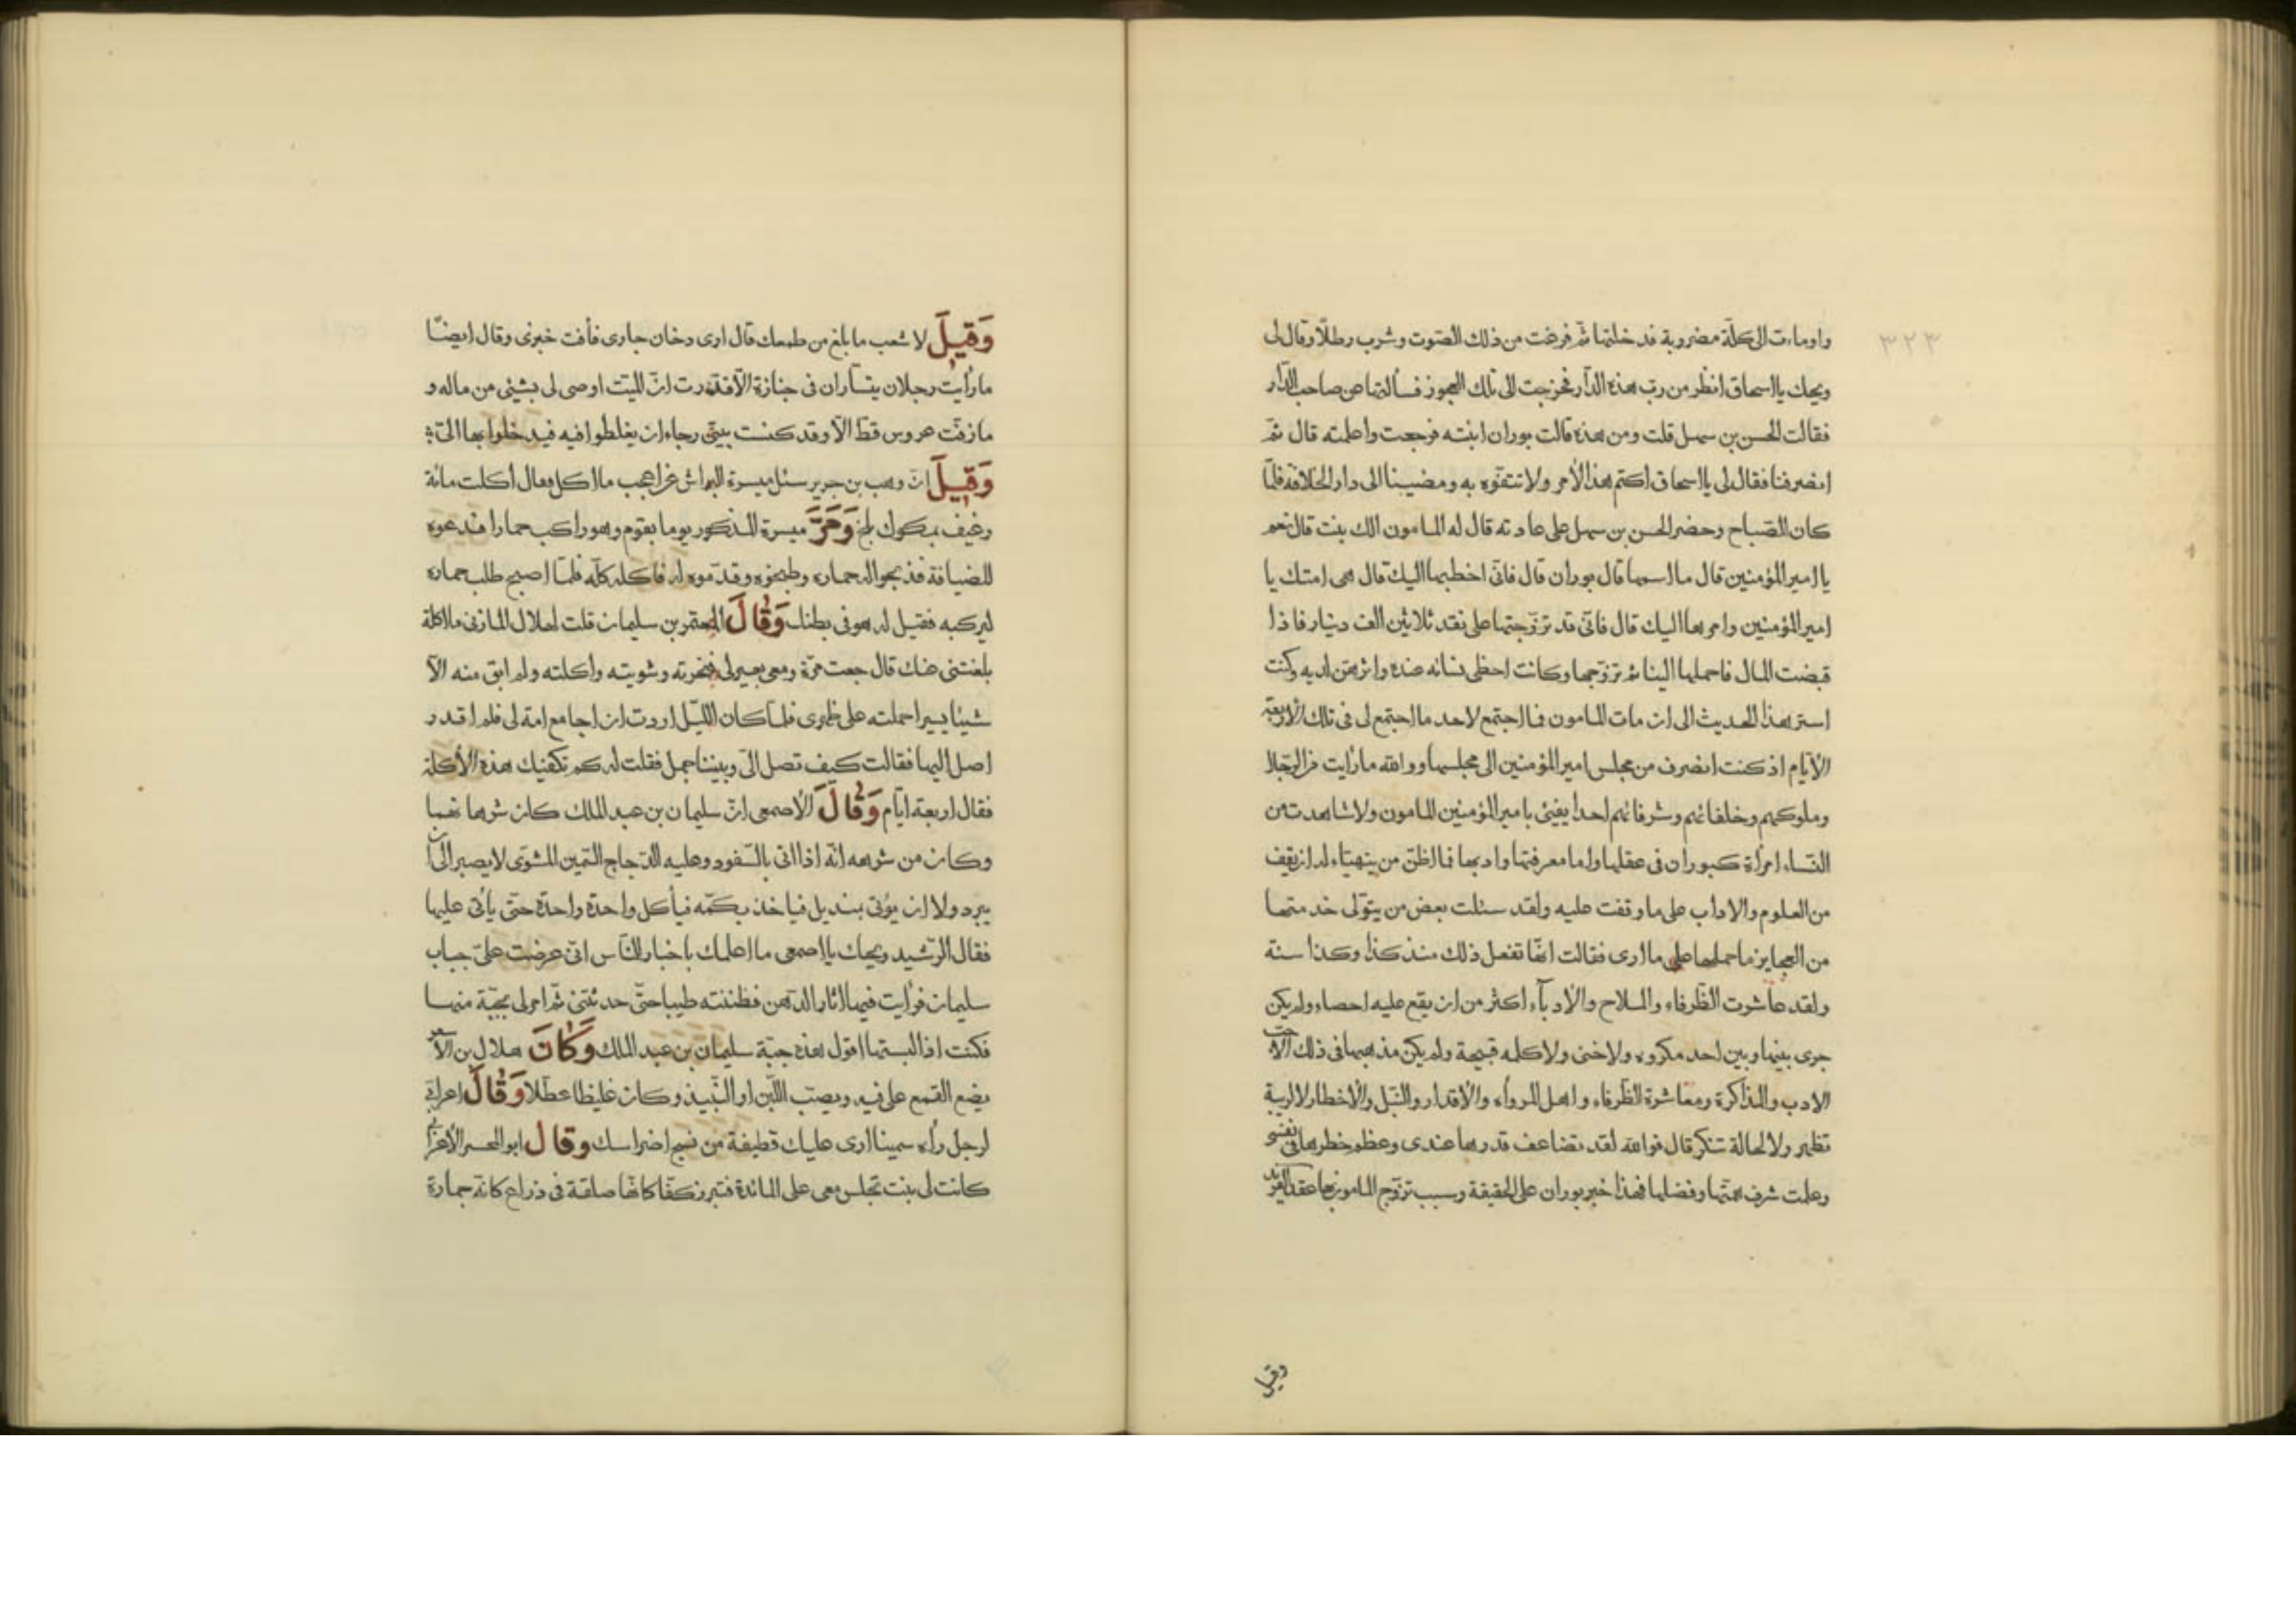 ٣٢٣
واومات الى كلة مضروبة فدخلتها ثم فرغت من ذلك الصوت وشرب رطلا وقال لى
ويحك يا اسحاق انظر من رب هذه الدار فخرجت الى تلك العجوز فسألتها عن صاحب الدار
فقالت الحسن بن سهل قلت ومن هذه قالت بوران ابنته فرجعت واعلمته قال ثم
انصرفنا فقال لى يا اسحاق اكتم هذا الأمر ولا تتفوه به ومضينا الى دار الخلافة فلما
كان الصباح وحضر الحسن بن سهل على عادته قال له المامون الك بنت قال نعم
يا امير المؤمنين قال ما اسمها قال بوران قال فانى اخطبها اليك قال هى امتك يا
امير المؤمنين وامرها اليك قال فانى قد تزوجتها على نقد ثلاثين الف دينار فاذا
قبضت المال فاحملها الينا ثم تزوجها وكانت احظى نسائه عنده واثرهن لديه وكنت
استر هذا الحديث الى ان مات المامون فما اجتمع لاحد ما اجتمع لى فى تلك الأربعة
الأيام اذ كنت انصرف من مجلس امير المؤمنين الى مجلسها ووالله ما رأيت من الرجال
وملوكهم وخلفائهم وشرفائهم احدا يفى بامير المؤمنين المامون ولا شاهدت من
النساء امرأة كبوران فى عقلها واما معرفتها وادبها فما اظن من يتهياء له ان يقف
من العلوم والاداب على ما وقفت عليه ولقد سئلت بعض من يتولى خدمتها
من العجايز ما حملها على ما ارى فقالت انها تفعل ذلك منذ كذا وكذا سنة
ولقد عاشرت الظرفاء والملاح والأدباء اكثر من ان يقع عليه احصاء ولم يكن
جرى بينها وبين احد مكروه ولا خنى ولا كلمه قبيحة ولم يكن مذهبها فى ذلك الا حب
الادب والمذاكرة ومعاشرة الظرفاء واهل المروأه والأقدار والنبل والأخطار لا لريبة
تظهر ولا لحالة تنكر قال فوالله لقد تضاعف قدرها عندى وعظم خطرها فى نفسى
وعلمت شرف همتها وفضلها فهذا خبر بوران على الحقيقة وسبب تزوج المامون بها عقد الفريد
وقيل
وَقيلَ لاشعب ما بلغ من طمعك قال ارى دخان جارى فأفت خبزى وقال ايضا
ما رأيت رجلان يتساران فى جنازة الا قدرت ان الميت اوصى لى بشئى من ماله و
ما زفت عروس قط الا وقد كنست بيتى رجاء ان يغلطوا فيه فيدخلوا بها الى
وَقيلَ ان وهب بن جرير سئل ميسرة البراش عن اعجب ما اكل فقال اكلت مائة
رغيف بمكوك بلح وَمَرَّ ميسرة المذكور يوما بقوم وهو راكب حمارا فدعوه
للضيافة فذبحوا له حماره وطبخوه وقدموه له فاكله كله فلما اصبح طلب حماره
ليركبه فقيل له هو فى بطنك وَقالَ المعتمر بن سليمان قلت لهلال المازنى ما اكلة
بلغتنى عنك قال جعت مرة ومعى بعير لى فنحرته وشويته واكلته ولم ابق منه الا
شيئا يسيرا حملته على ظهرى فلما كان الليل اردت ان اجامع امة لى فلم اقدر
اصل اليها فقالت كيف تصل الى وبيننا جمل فقلت له كم تكفيك هذه الأكلة
فقال اربعة ايام وَقالَ الأصمعى ان سليمان بن عبد الملك كان شرها نهما
وكان من شرهه انه اذا اتى بالسفود وعليه الدجاج السمين المشوى لا يصبر الى ان
يبرد ولا ان يؤتى بمنديل فياخذ بكمه فيأكل واحدة واحدة حتى يأتى عليها
فقال الرشيد ويحك يا اصمعى ما اعلمك باخبار الناس انى عرضت على جباب
سليمان فرأيت فيها اثار الدهن فظننته طيبا حتى حدثتنى ثم امر لى بجبة منها
فكنت اذا لبستها اقول هذه جبة سليمان بن عبد الملك وَكانَ هلال بن الأسعر
يضع القمع على فيه ويصب اللبن او النبيذ وكان غليظا عطلا وَقالَ اعرابى
لرجل رأه سمينا ارى عليك قطيفة من نسج اضراسك وقال ابو الحسن الأعرابى
كانت لى بنت تجلس معى على المائدة فتبرز كفا كانها صلفة فى ذراع كانه جمارة